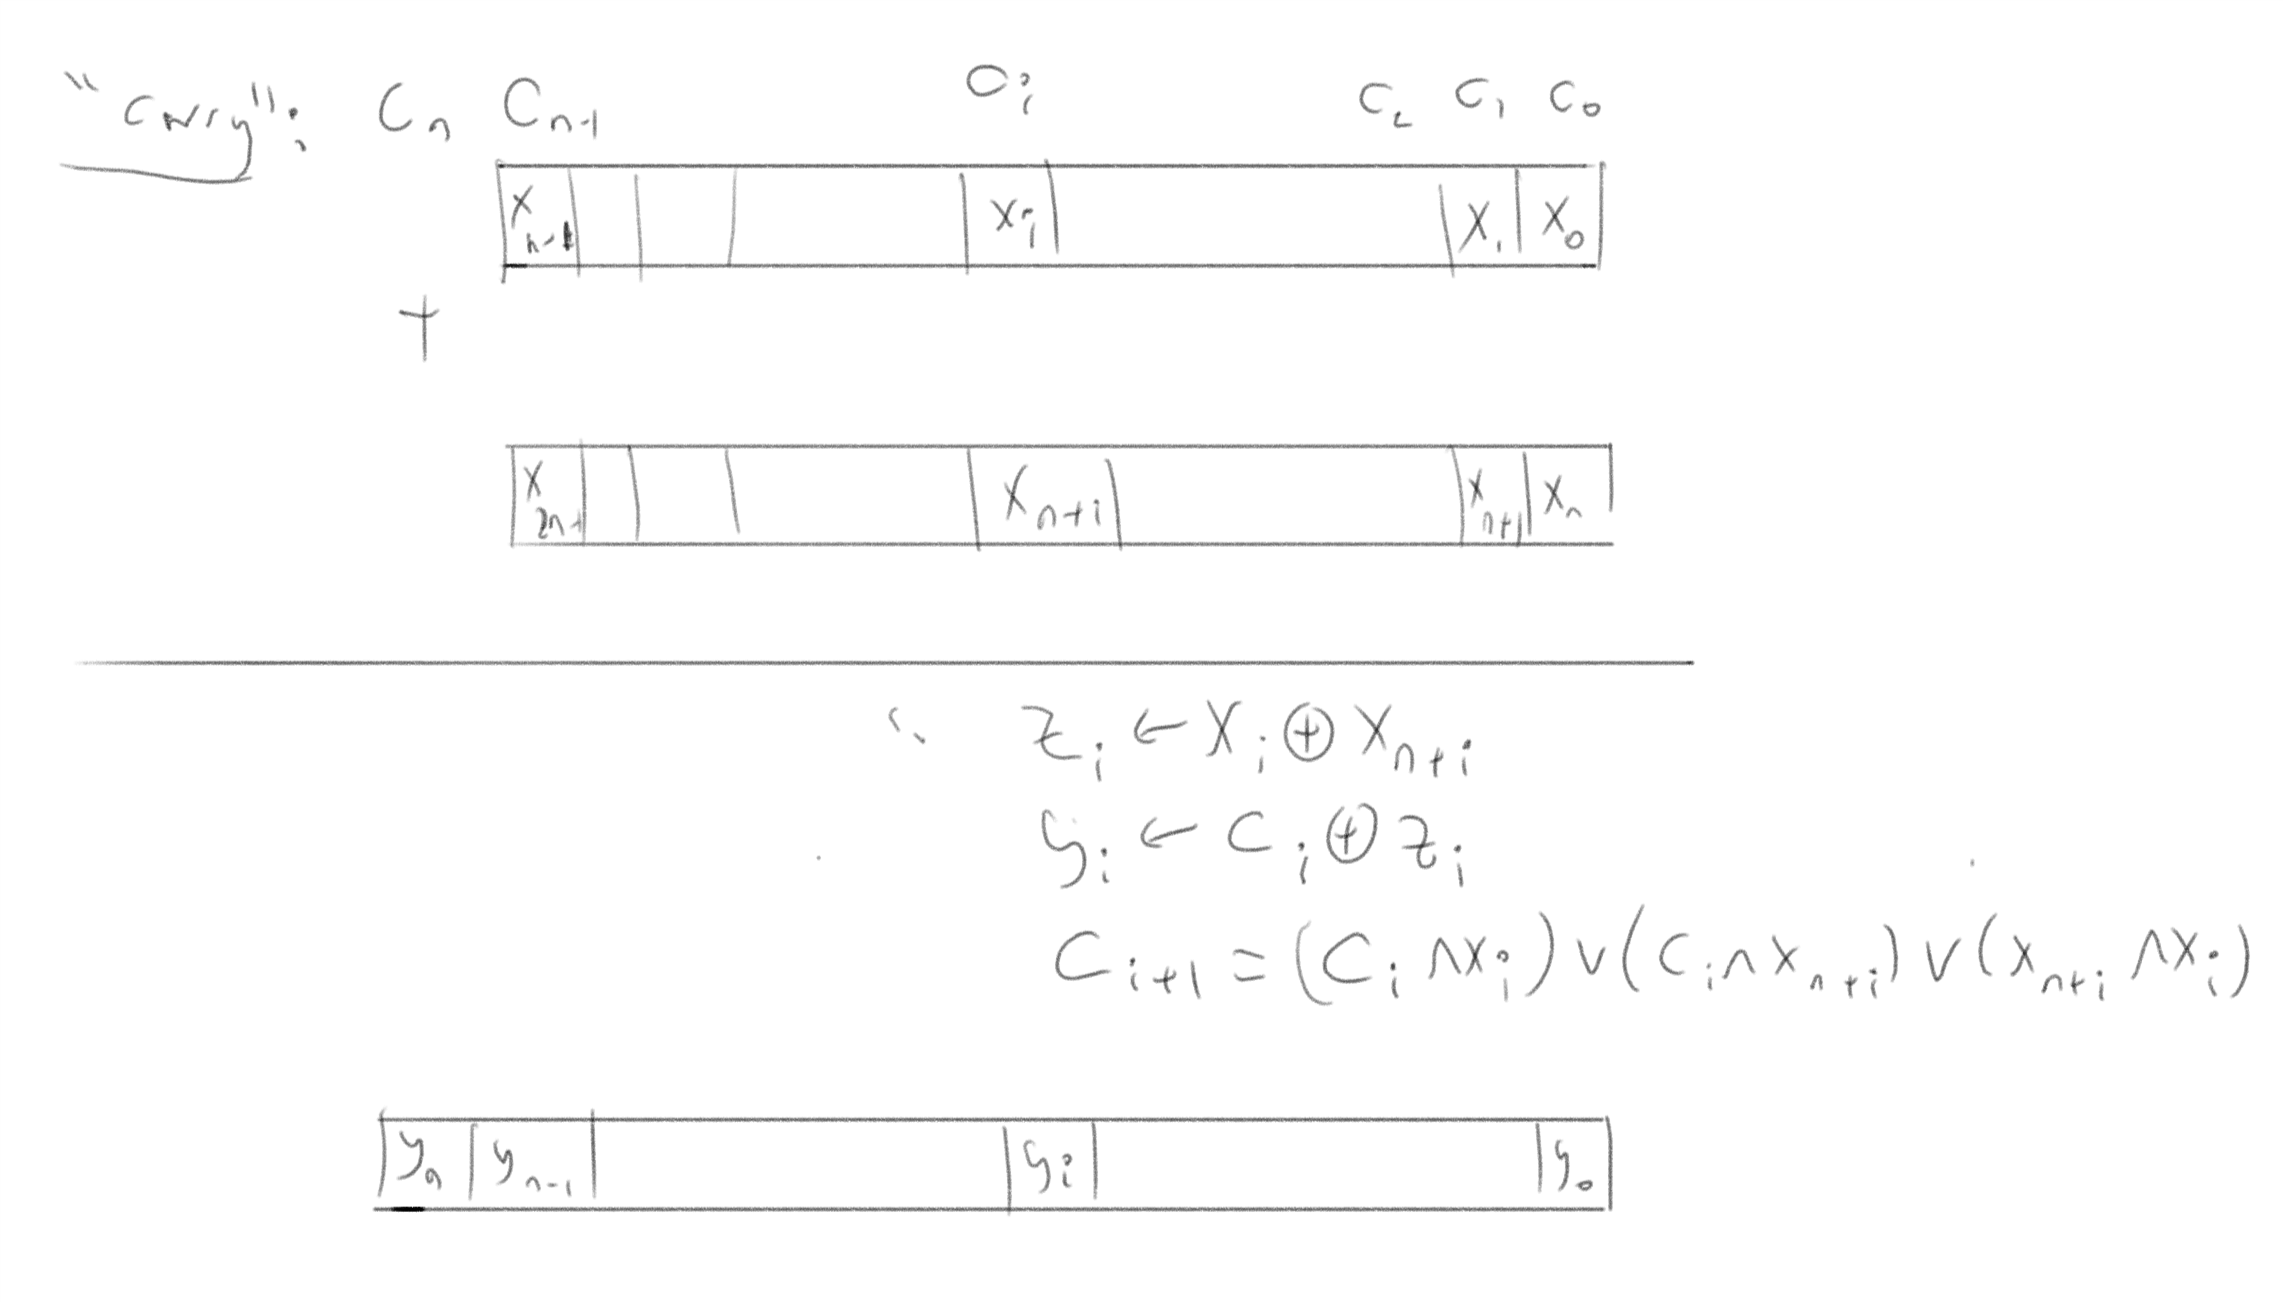 "carry": Cₙ Cₙ₋₁ Cᵢ C₂ C₁ C₀
Xₙ₋₁ Xᵢ X₁ X₀
+
X₂ₙ₋₁ Xₙ₊ᵢ Xₙ₊₁ Xₙ
zᵢ ← Xᵢ ⊕ Xₙ₊ᵢ
yᵢ ← Cᵢ ⊕ zᵢ
Cᵢ₊₁ = (Cᵢ ∧ Xᵢ) ∨ (Cᵢ ∧ Xₙ₊ᵢ) ∨ (Xₙ₊ᵢ ∧ Xᵢ)
yₙ yₙ₋₁ yᵢ y₀